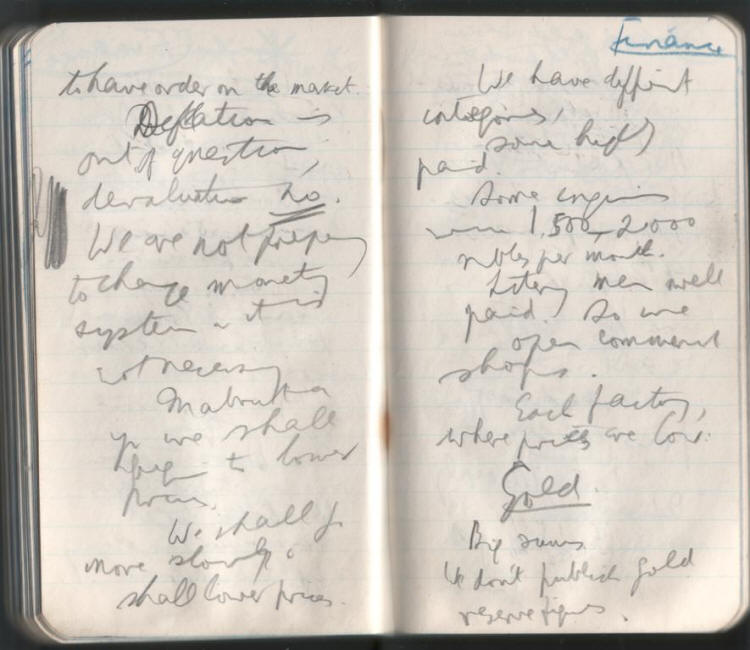 to have order on the market.
Deflation is
out of question,
devaluation no.
We are not prepared
to change monetary
system &
not necessary
we shall
begin to lower
prices.
We shall go
more slowly &
shall lower prices.
Finance
We have different
categories,
some highly
paid.
Some engineers
1,500, 2000
rubles per month.
Literary men well
paid. So we
open commercial
shops.
Each factory,
where prices are low.
Gold.
Big sums
We don't publish gold
reserve figures.